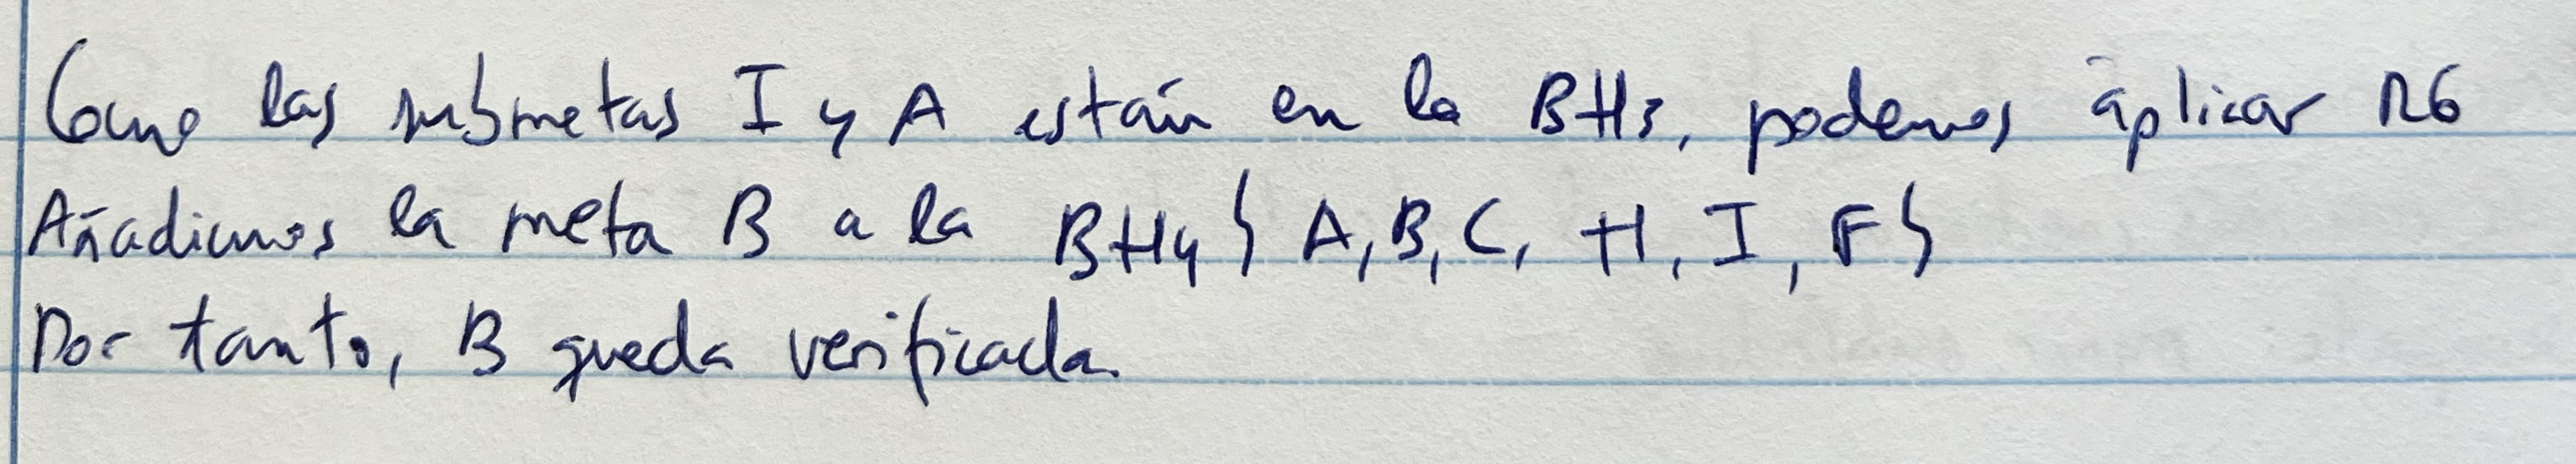 Como las submetas I y A están en la BH3, podemos aplicar R6
Añadimos la meta B a la BH4 { A, B, C, H, I, F }
Por tanto, B queda verificada.